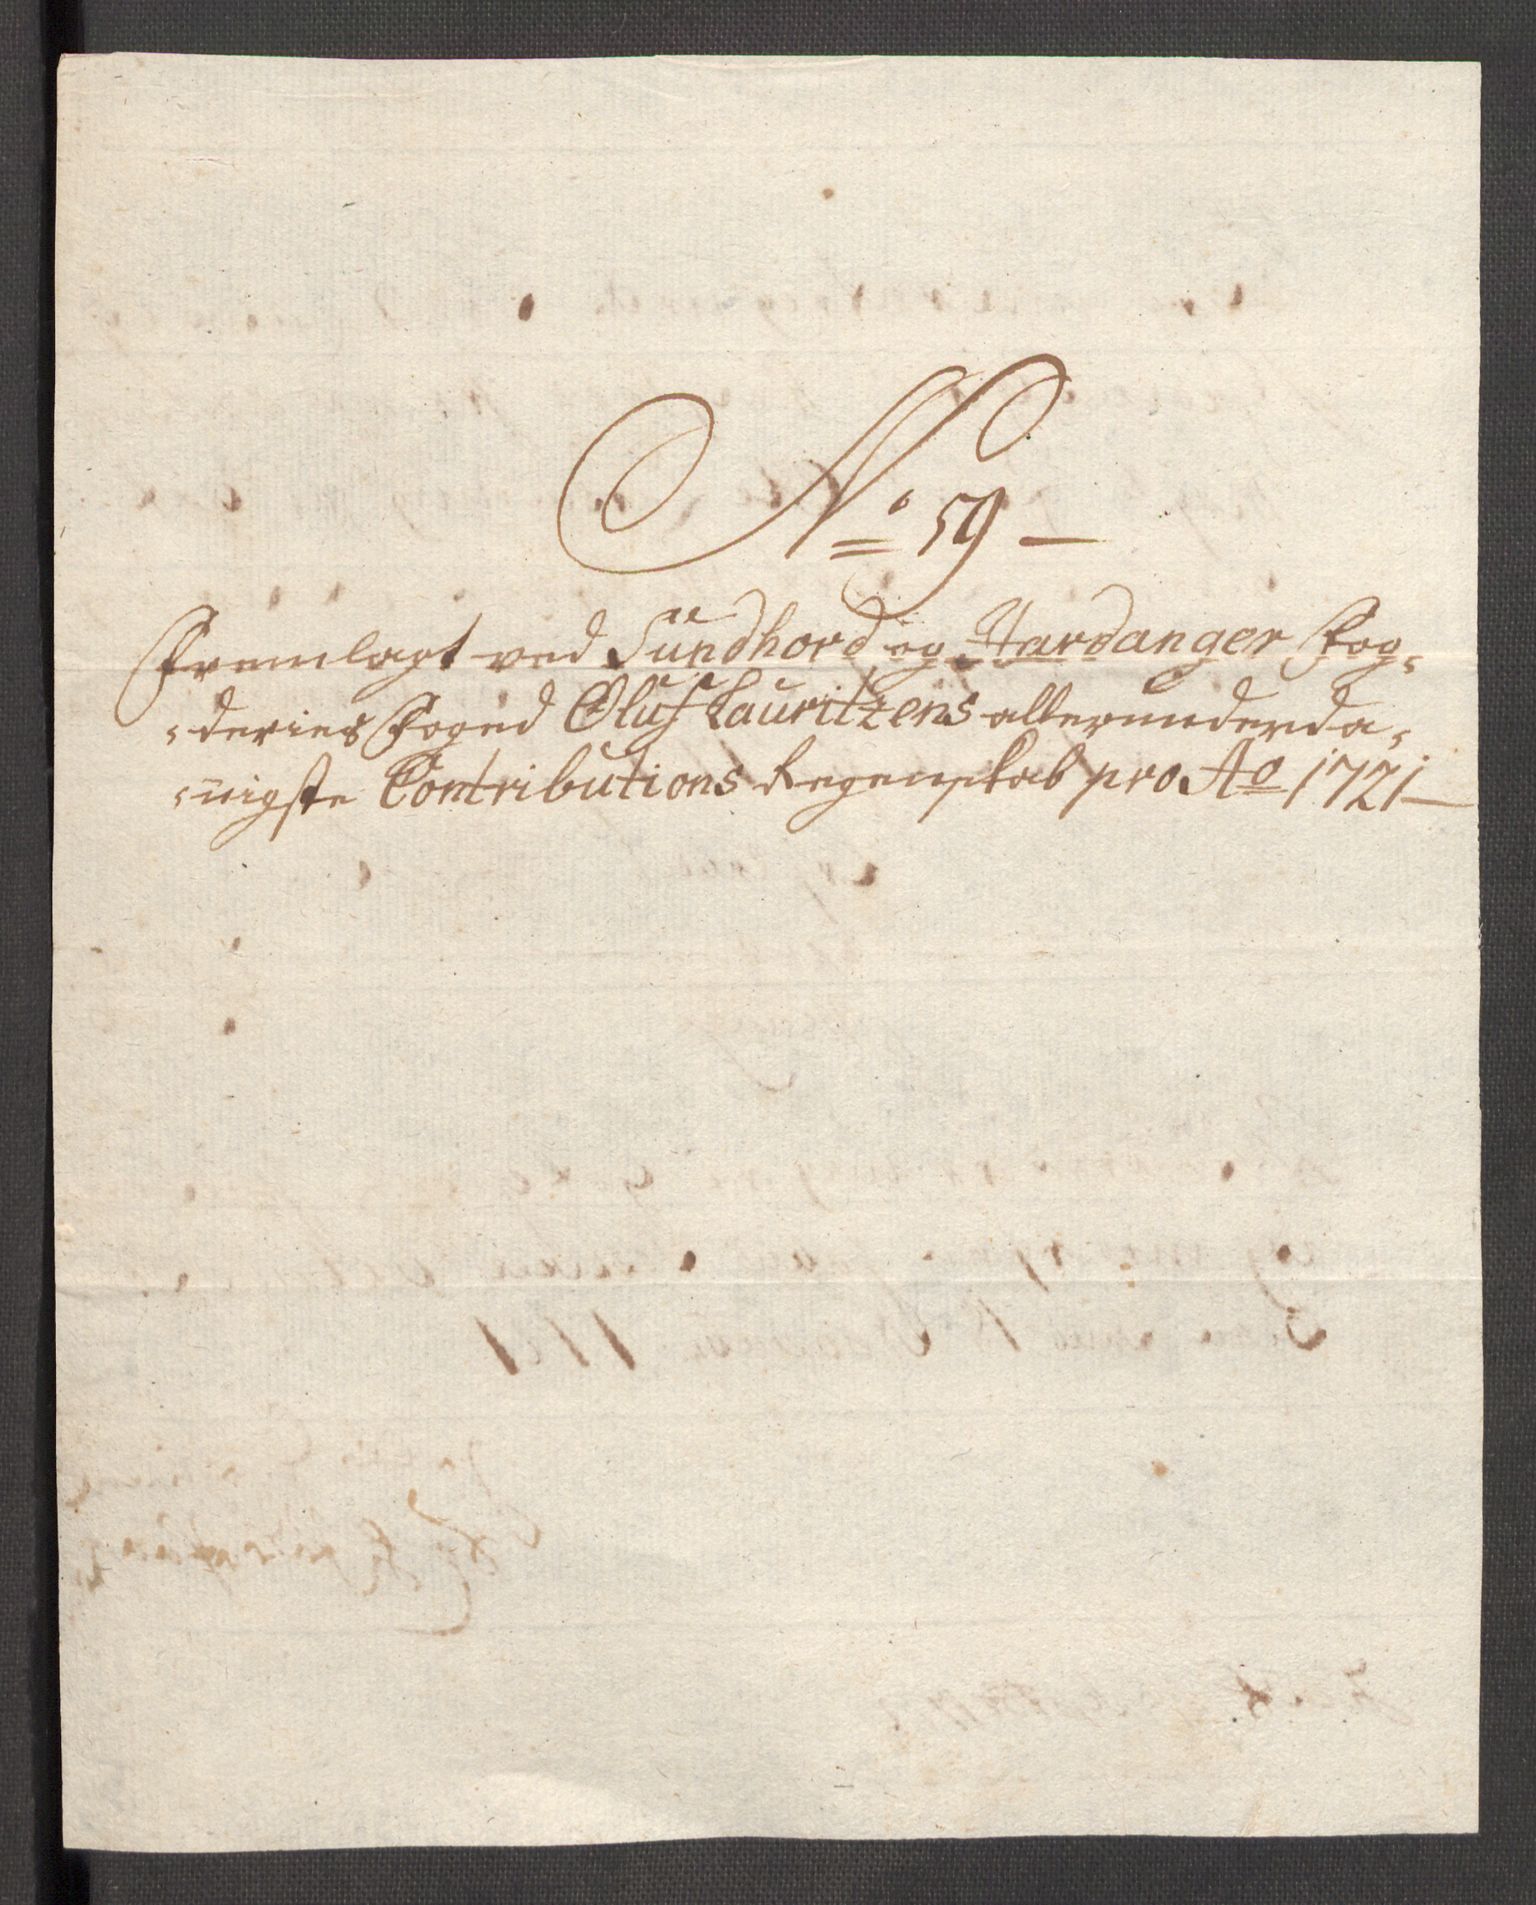 No 59 —
Fremlagt ved Sundhord og Hardanger Fog-
-deries Foged Oluf Lauritzens allerunderda-
-nigste Contributions Regenskab pro Ao 1721 —